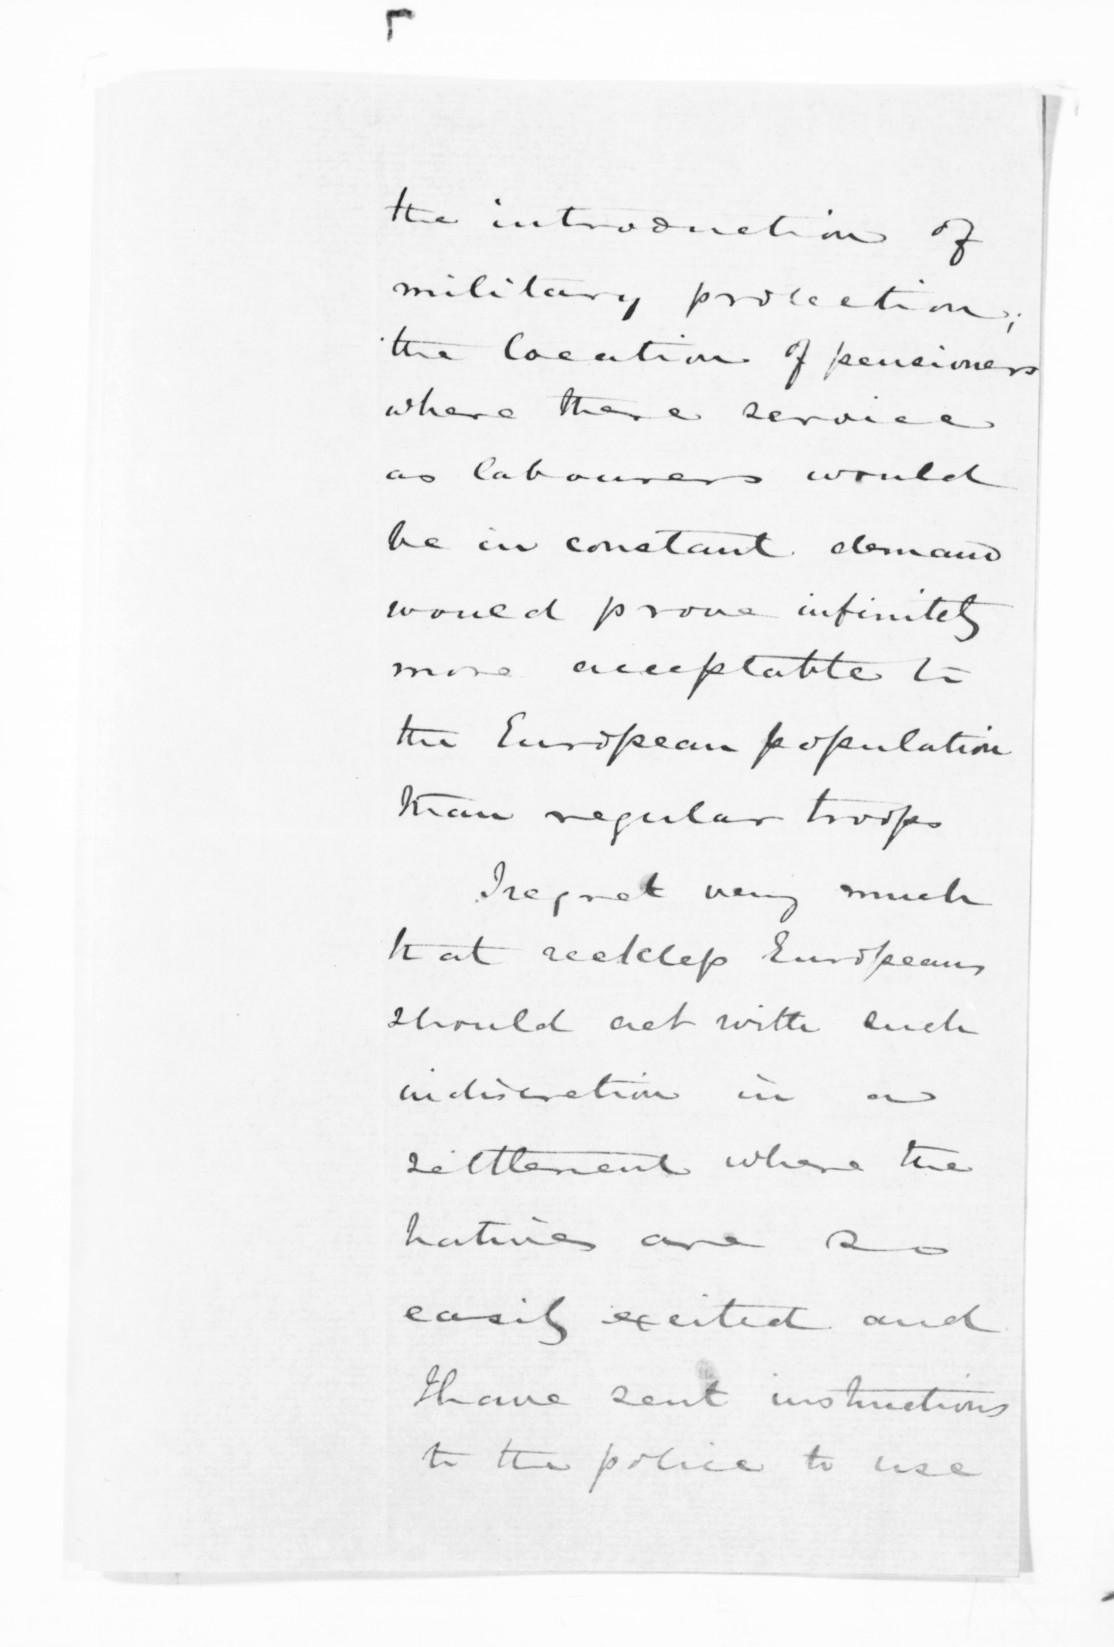 the introduction of
military protection;
the location of pensioners
where there service
as labourers would
be in constant demand
would prove infinitely
more acceptable to
the European population
than regular troops
I regret very much
that reckless Europeans
should act with such
indiscretion in a
settlement where the
natives are so
easily excited and
I have sent instructions
to the police to use